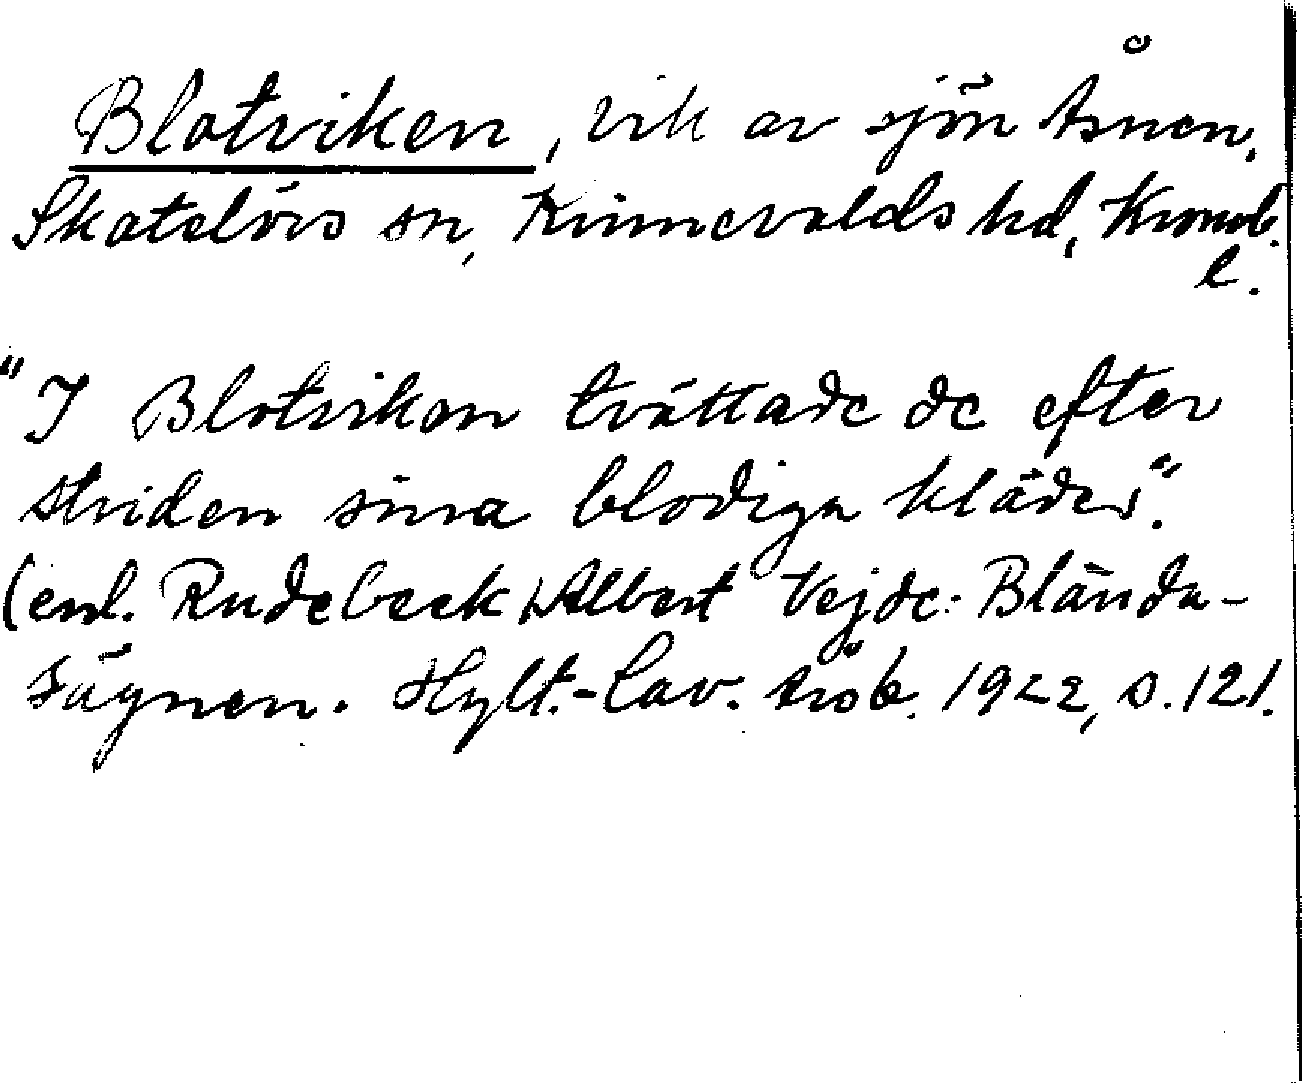 Blotviken, vik av sjön Åsnen,
Skatelövs sn, Kinnevalds hd, Kronob.
l.
"I Blotviken tvättade de efter
striden sina blodiga kläder."
(enl. Rudebeck, Albert Vejde: Blända-
sägnen. Hylt.-Cav. årsb. 1922, s. 121.